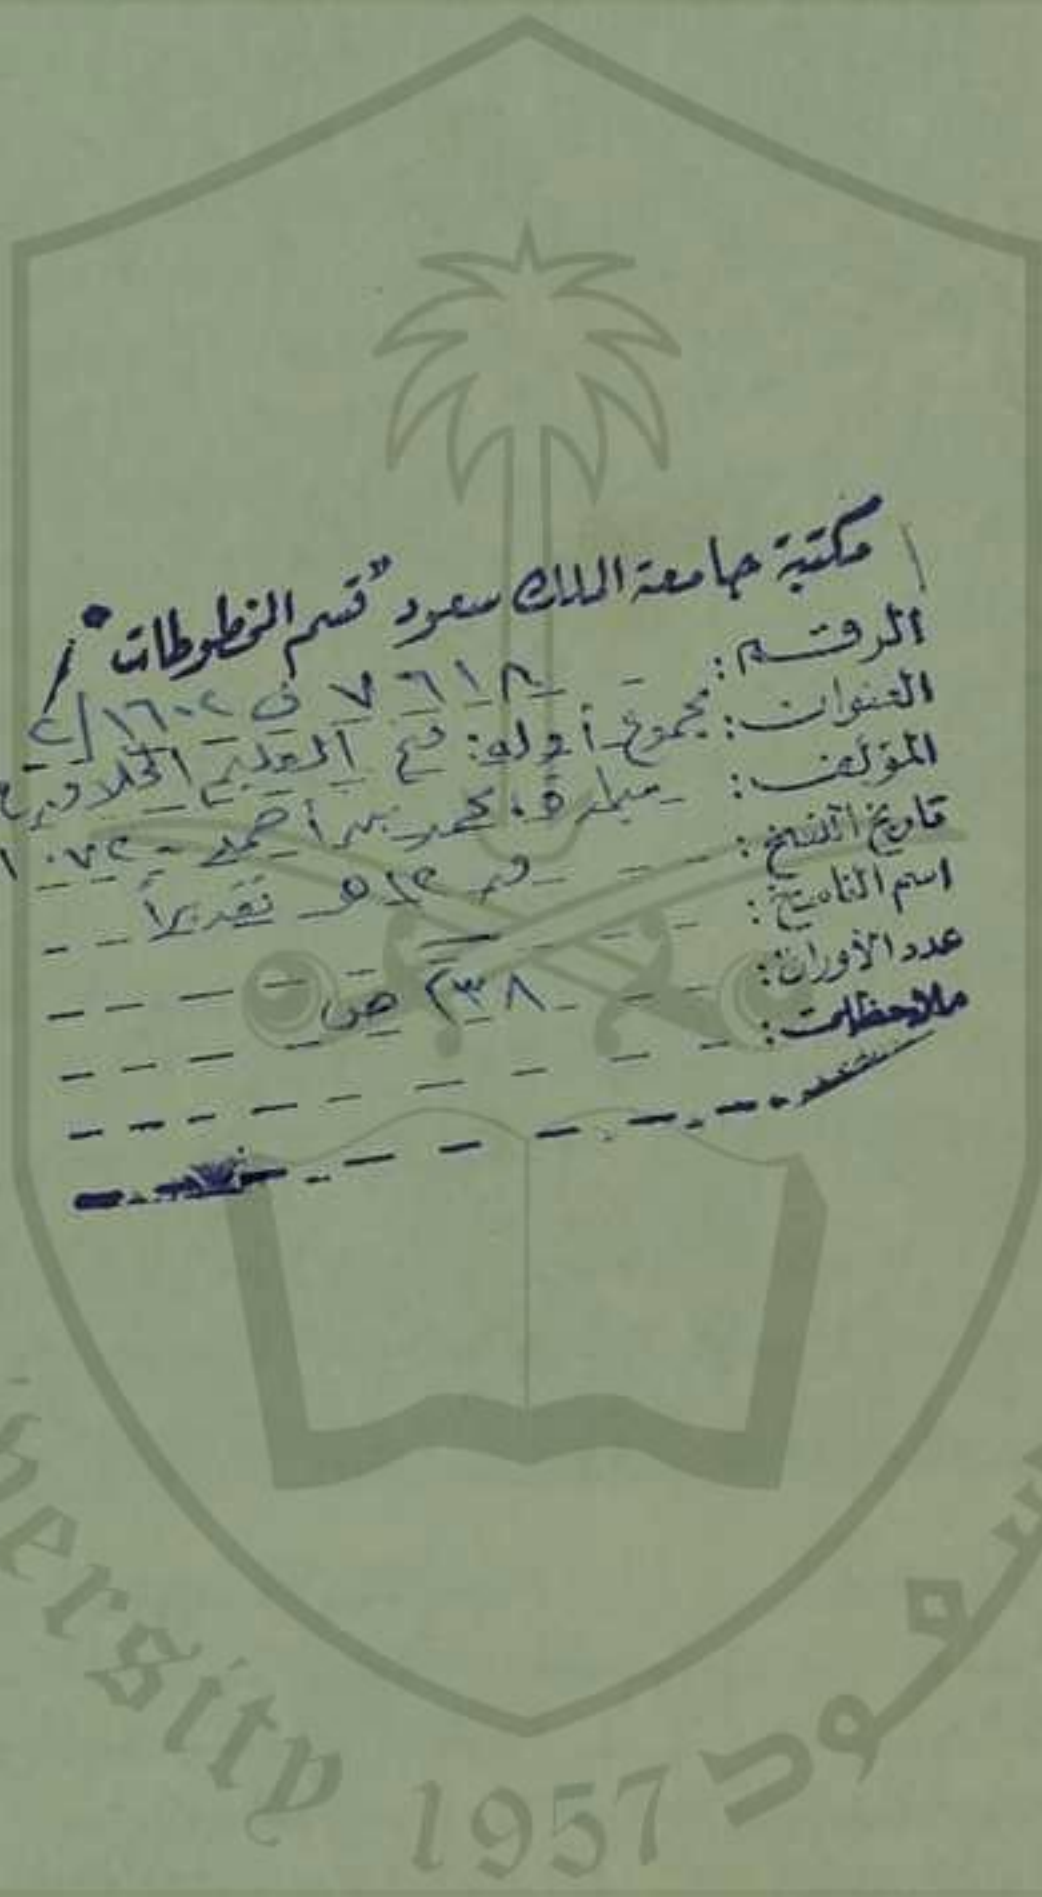 مكتبة جامعة الملك سعود "قسم المخطوطات"
الرقم: ٧٦١٨ ف ١٦٠٢/٢
العنوان: مجموع أوله: فتح العليم الخلاق
المؤلف: ميارة، محمد بن أحمد - ١٠٧٢
تاريخ النسخ: ق ١٢ هـ تقديراً
اسم الناسخ:
عدد الأوراق: ٢٣٨ ص
ملاحظات:
ersity 1957 سعود